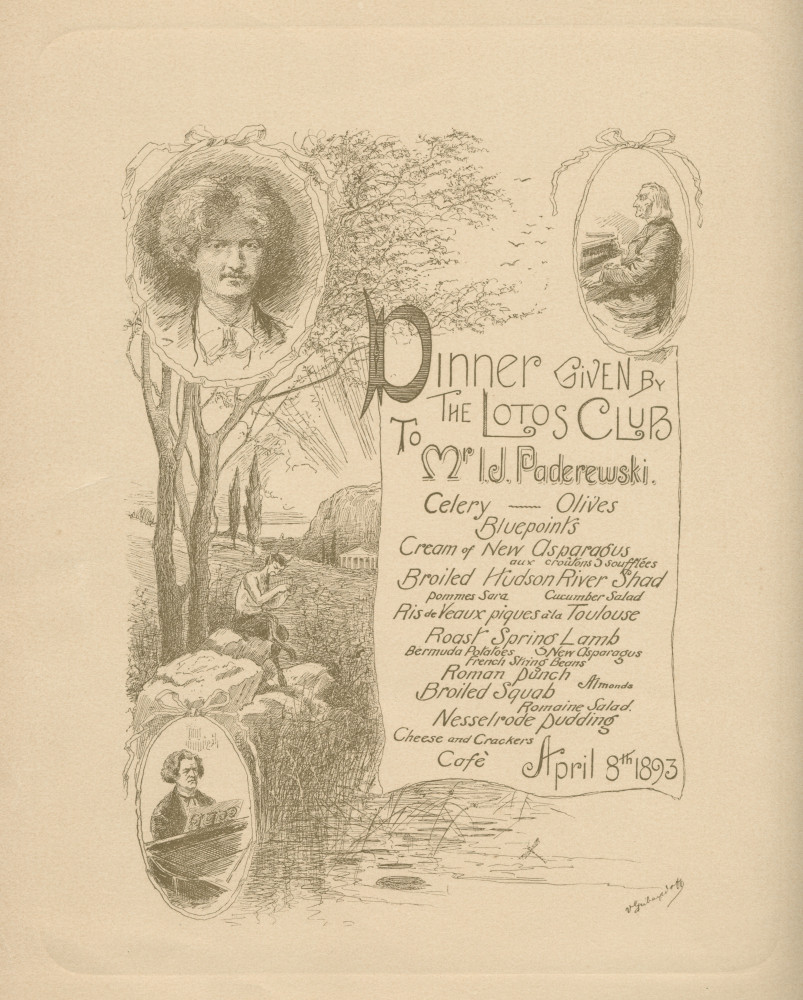 Dinner Given By
The Lotos Club
To
Mr I.J. Paderewski.
Celery — Olives
Bluepoints
Cream of New Asparagus
aux croutons soufflées
Broiled Hudson River Shad
pommes Sara Cucumber Salad
Ris de Veaux piques a la Toulouse
Roast Spring Lamb
Bermuda Potatoes New Asparagus
French String Beans
Roman punch
Almonds
Broiled Squab
Romaine Salad.
Nesselrode pudding
Cheese and Crackers
Cafè April 8th 1893